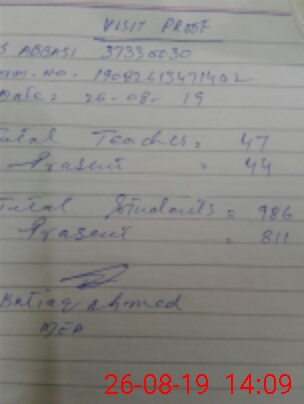 VISIT PROOF
S ABBASI 37330030
No. 19082613471402
Date: 26-08-19
Total Teaches = 47
Prasent = 44
Total Students = 986
Prasent = 811
Ahmed
MEA
26-08-19 14:09